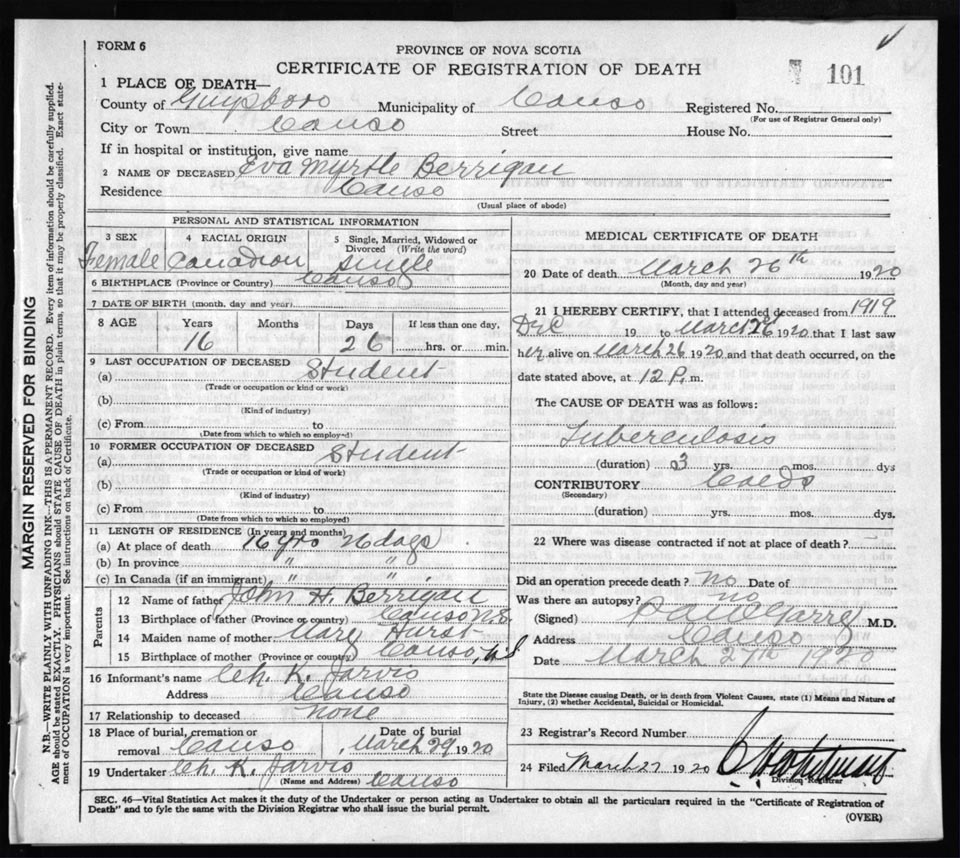 FORM 6
PROVINCE OF NOVA SCOTIA
CERTIFICATE OF REGISTRATION OF DEATH
101
1 PLACE OF DEATH—
County of Guysboro Municipality of Canso Registered No.
(For use of Registrar General only)
City or Town Canso Street House No.
If in hospital or institution, give name
2 NAME OF DECEASED Eva Myrtle Berrigan
Residence Canso
(Usual place of abode)
PERSONAL AND STATISTICAL INFORMATION
3 SEX 4 RACIAL ORIGIN 5 Single, Married, Widowed or Divorced (Write the word)
Female Canadian Single
6 BIRTHPLACE (Province or Country) Canso
7 DATE OF BIRTH (month, day and year)
8 AGE Years Months Days If less than one day,
16 26 hrs. or min.
9 LAST OCCUPATION OF DECEASED
(a) Student
(Trade or occupation or kind or work)
(b)
(Kind of industry)
(c) From to
(Date from which to which so employed)
10 FORMER OCCUPATION OF DECEASED
(a) Student
(Trade or occupation or kind of work)
(b)
(Kind of industry)
(c) From to
(Date from which to which so employed)
11 LENGTH OF RESIDENCE (In years and months)
(a) At place of death 16 yrs 26 days
(b) In province " "
(c) In Canada (if an immigrant) " "
Parents
12 Name of father John H. Berrigan
13 Birthplace of father (Province or country) Canso N.S.
14 Maiden name of mother Mary Hurst
15 Birthplace of mother (Province or country) Canso, N.S
16 Informant's name Ch. K. Jarvis
Address Canso
17 Relationship to deceased none
18 Place of burial, cremation or removal Canso Date of burial March 29, 1920
19 Undertaker Ch. K. Jarvis
(Name and Address) Canso
MEDICAL CERTIFICATE OF DEATH
20 Date of death March 26th 1920
(Month, day and year)
21 I HEREBY CERTIFY, that I attended deceased from 1919
Dec 19 to March 26 1920 that I last saw
her alive on March 26 1920 and that death occurred, on the
date stated above, at 12 P. m.
The CAUSE OF DEATH was as follows:
Tuberculosis
(duration) 3 yrs. mos. dys
CONTRIBUTORY Colds
(Secondary)
(duration) yrs. mos. dys.
22 Where was disease contracted if not at place of death?
Did an operation precede death? no Date of
Was there an autopsy? no
(Signed) M.D.
Address Canso
Date March 27th 1920
State the Disease causing Death, or in death from Violent Causes, state (1) Means and Nature of Injury, (2) whether Accidental, Suicidal or Homicidal.
23 Registrar's Record Number
24 Filed March 27 1920
Division Registrar
SEC. 46—Vital Statistics Act makes it the duty of the Undertaker or person acting as Undertaker to obtain all the particulars required in the "Certificate of Registration of
Death" and to fyle the same with the Division Registrar who shall issue the burial permit.
(OVER)
MARGIN RESERVED FOR BINDING
N.B.—WRITE PLAINLY WITH UNFADING INK—THIS IS A PERMANENT RECORD. Every item of information should be carefully supplied.
AGE should be stated EXACTLY. PHYSICIANS should STATE CAUSE OF DEATH in plain terms, so that it may be properly classified. Exact statement of OCCUPATION is very important. See instructions on back of Certificate.